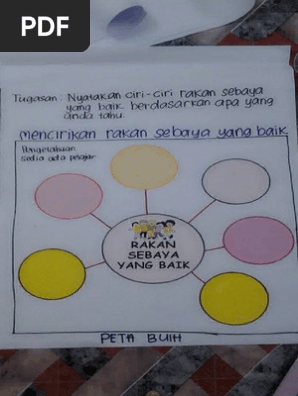 PDF
Tugasan: Nyatakan ciri-ciri rakan sebaya
yang baik berdasarkan apa yang
anda tahu.
mencirikan rakan sebaya yang baik
Pengetahuan
sedia ada pelajar
RAKAN
SEBAYA
YANG BAIK
PETA BUIH